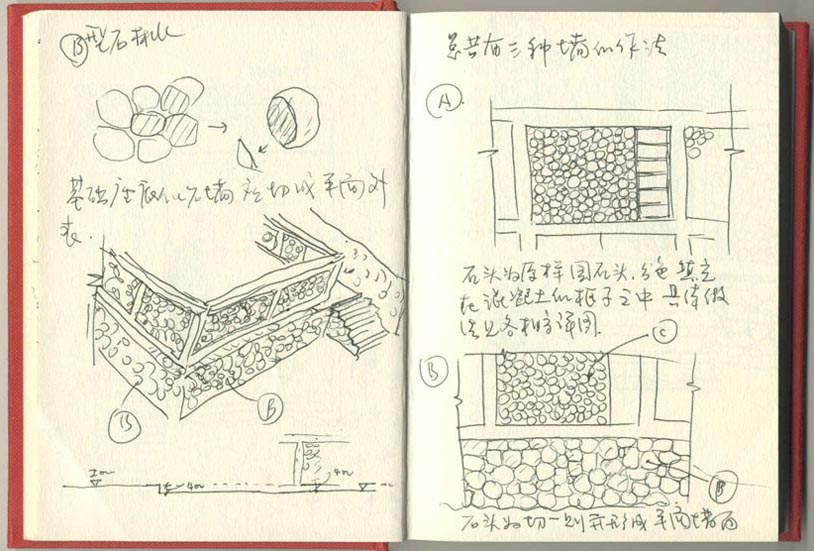 B型石材化
基础座底似石墙应切成平面外
表.
B
B
总共有三种墙的作法
A
石头为原样圆石头.分色填充
在混凝土的框子之中 具体做
法见各相应详图.
C
B
B
石头为切一则并形成平面墙面